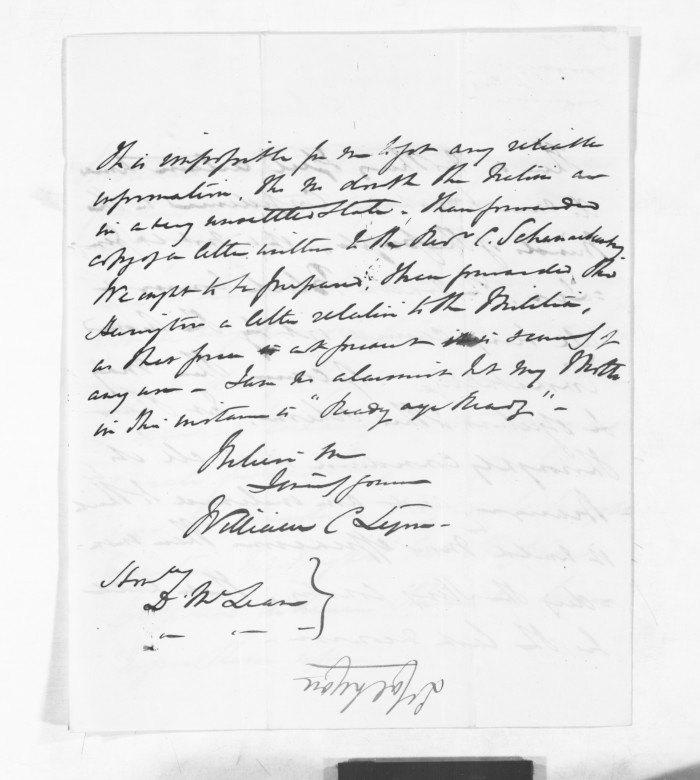 It is impossible for me to get any reliable
information. Tho no doubt the Natives are
in a very unsettled State, I have forwarded
copy of a letter written to the Revd C. Schnackenberg
We ought to be prepared. I have forwarded Tho
a letter relative to the Militia,
as that force at present is scarcely of
any use – I am no alarmist but my Motto
in this instance is "Ready aye Ready" –
Believe me
Yours
William C Lyon –
Honble
D. McLean